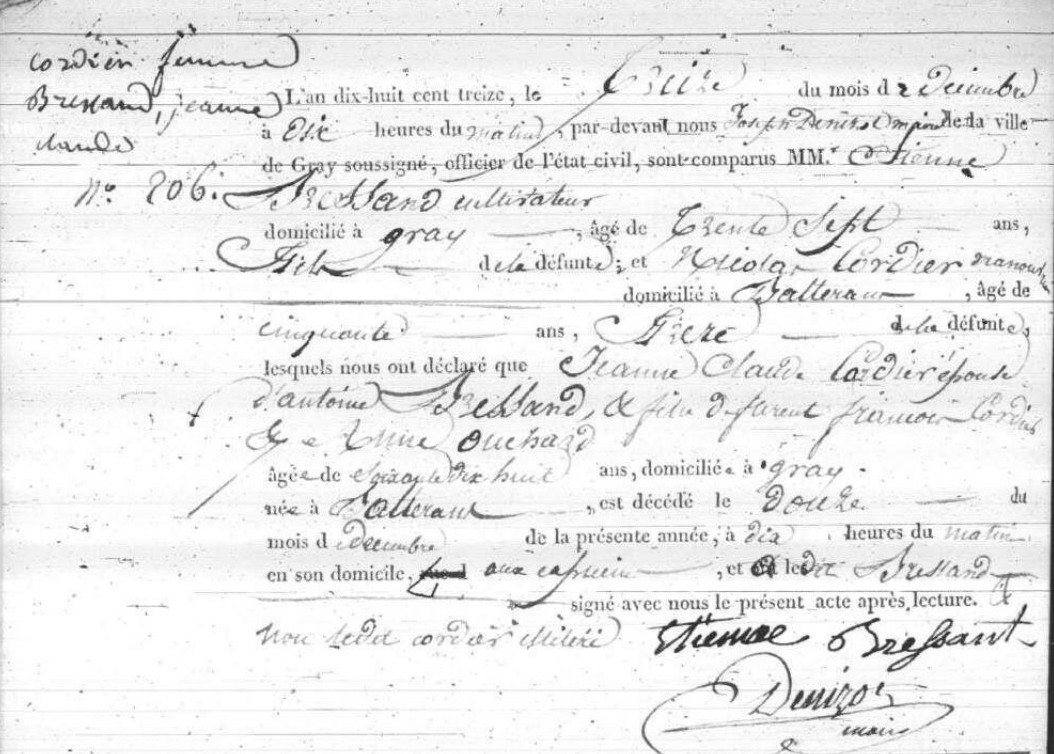 cordier femme
Bressand, jeanne
claude
N.º 206.
L'an dix-huit cent treize, le treize du mois de Décembre
à Dix heures du matin, par-devant nous Joseph Denizot maire de la ville
de Gray soussigné, officier de l'état civil, sont comparus MM.rs Etienne
Bressand cultivateur
domicilié à gray, âgé de Trente Sept ans,
Fils de la défunte; et Nicolas Cordier manouvrier
domicilié à Batterans, âgé de
cinquante ans, Frere de la défunte,
lesquels nous ont déclaré que Jeanne Claude Cordier épouse
d'antoine Bressand, & fille de françois Cordier
& de Anne Ouchard
âgée de soixante dix huit ans, domiciliée à gray.
née à Batterans, est décédé le Douze du
mois de Décembre de la présente année, à dix heures du matin
en son domicile, aux capucins, et ledit Bressand a
signé avec nous le présent acte après lecture.
non ledit cordier illiteré
Etienne Bressant
Denizot
maire